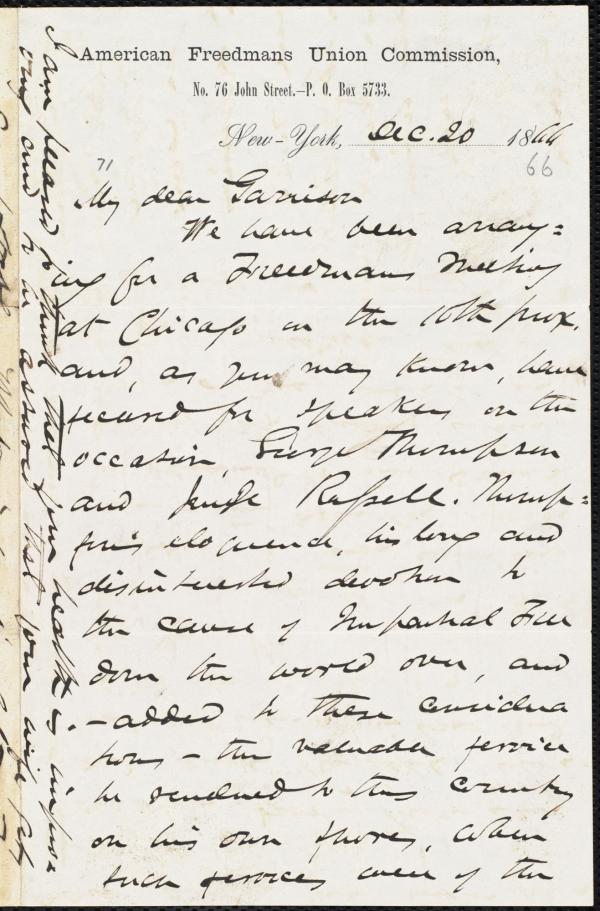 American Freedmans Union Commission,
No. 76 John Street.—P. O. Box 5733.
New-York, Dec. 20 1866
71
66
My dear Garrison
We have been arrang=
ing for a Freedmans Meeting
at Chicago on the 10th prox.
and, as you may know, have
secured for speakers on the
occasion, George Thompson
and Judge Russell. Thomp=
son's eloquence, his long and
disinterested devotion to
the cause of Impartial Free
dom the world over, and
— added to these considera
tions — the valuable service
he rendered to this country
on his own shores, when
such services were of the
I am pleased to think that your health is impro=
ving and to be assured that your wife